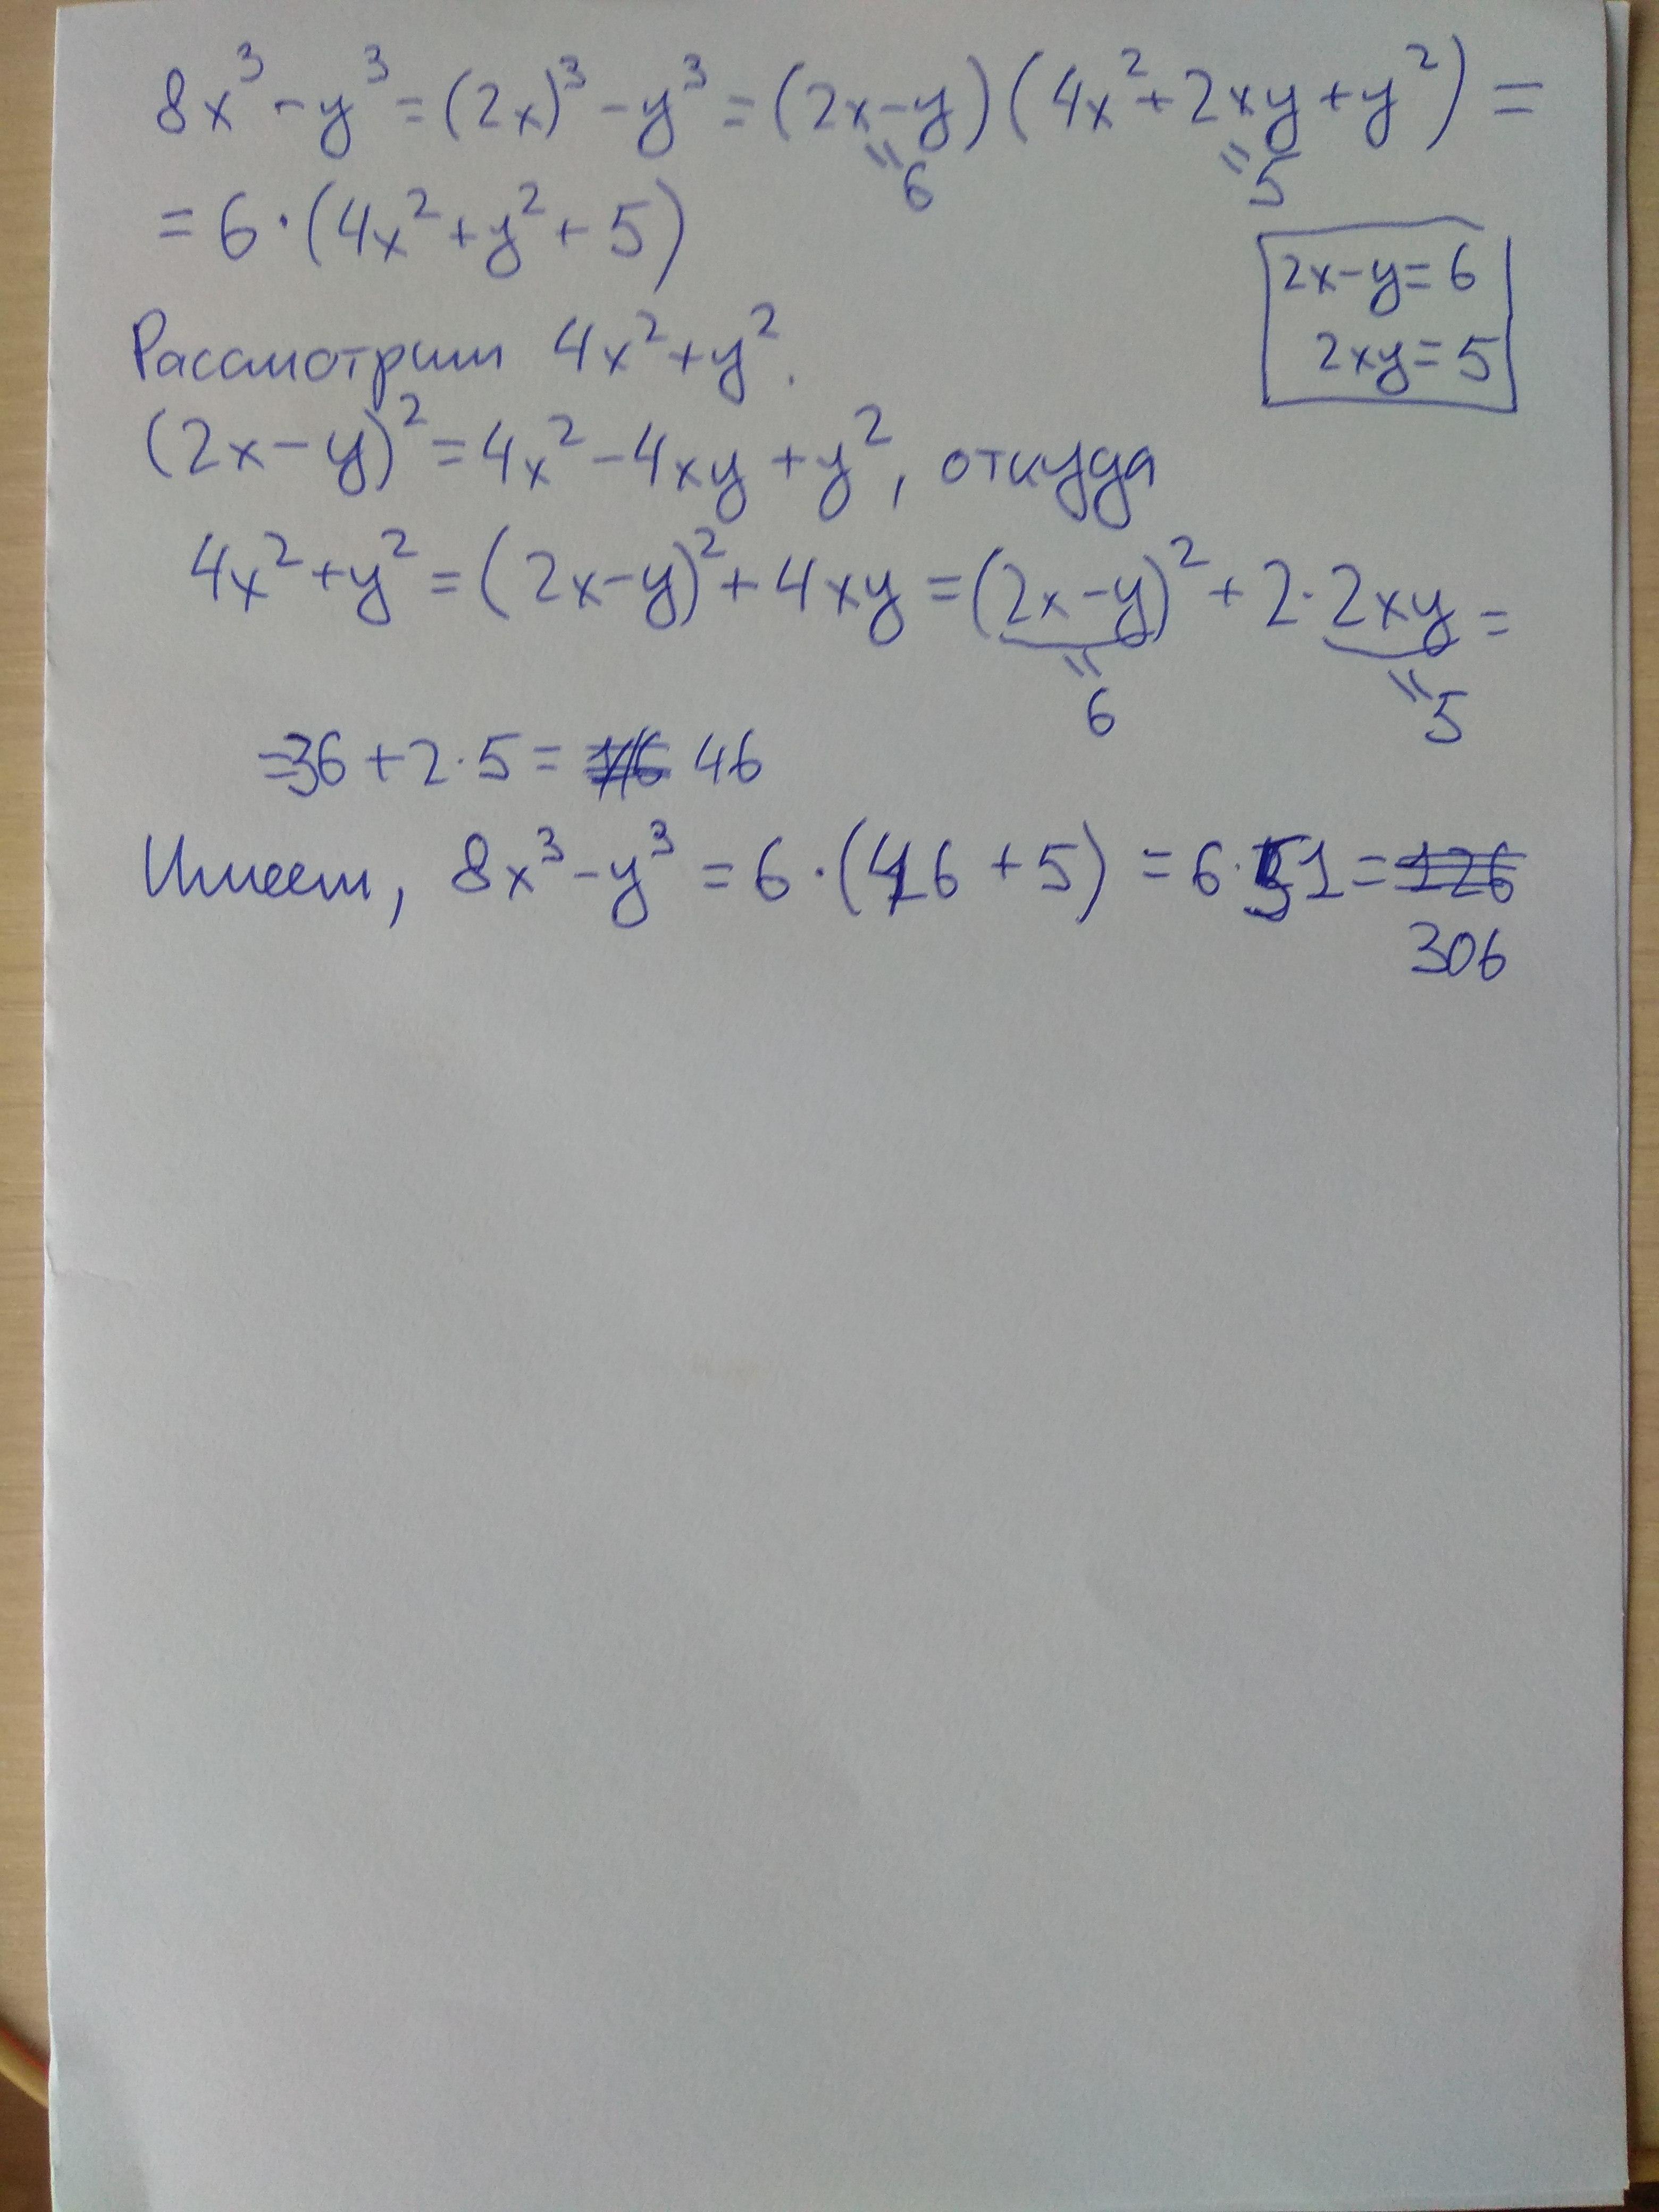 8x³ - y³ = (2x)³ - y³ = (2x - y)(4x² + 2xy + y²) =
= 6 · (4x² + y² + 5)
" 6
" 5
2x - y = 6
2xy = 5
Рассмотрим 4x² + y².
(2x - y)² = 4x² - 4xy + y², откуда
4x² + y² = (2x - y)² + 4xy = (2x - y)² + 2 · 2xy =
" 6
" 5
= 36 + 2 · 5 = 46
Имеем, 8x³ - y³ = 6 · (46 + 5) = 6 · 51 = 126
306